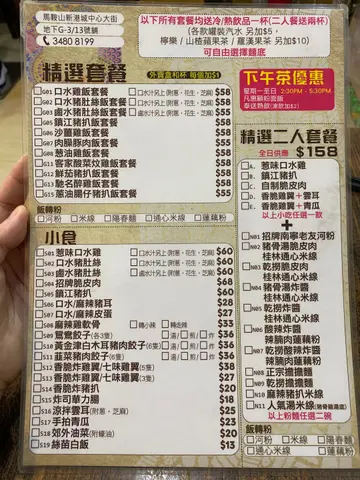 馬鞍山新港城中心大街
地下G-3/13號舖
3480 8199
以下所有套餐均送冷/熱飲品一杯(二人餐送兩杯)
(各款罐裝汽水 另加$5,
檸樂 / 山楂蘋果茶 / 羅漢果茶 另加$10)
可自由選擇麵底
精選套餐
外賣盒和杯 每個加$1
G01 口水雞飯套餐 口水汁另上 (附蔥、花生、芝麻) $58
G02 口水豬肚絲飯套餐 口水汁另上 (附蔥、花生、芝麻) $58
G05 鎮江豬扒飯套餐 $58
G06 沙薑雞飯套餐 $58
G07 肉腸豚肉飯套餐 $55
G08 蔥油雞飯套餐 $58
G11 客家酸菜炆雞飯套餐 $58
G12 鮮茄豬扒飯套餐 $58
G13 馳名醉雞飯套餐 $58
G15 蔥油腸仔豬扒飯套餐 $55
飯轉粉
河粉 米線 陽春麵 通心米線 蓮藕粉
下午茶優惠
星期一至日 2:30PM - 5:30PM
凡惠顧粉麵飯
奉送熱飲(凍飲加$2)
精選二人套餐
全日供應 $158
A. 惹味口水雞
B. 鎮江豬扒
C. 自制脆皮肉
D. 香脆雞翼+雲耳
E. 香脆雞翼+青瓜
以上小吃任選一款
+
N01 招牌南寧老友河粉
N02 豬骨湯脆皮肉
桂林通心米線
N03 乾撈脆皮肉
桂林通心米線
N04 豬骨湯炸醬
桂林通心米線
N05 乾撈炸醬
桂林通心米線
N06 酸辣炸醬
辣腩肉蓮藕粉
N07 乾撈酸辣炸醬
辣腩肉蓮藕粉
N08 正宗擔擔麵
N09 乾撈擔擔麵
N10 麻辣豬扒米線
N11 人氣湯米線(豬骨雞湯底)
以上粉麵任選二碗
飯轉粉
河粉 米線 陽春麵
通心米線 蓮藕粉
小食
S01 惹味口水雞 口水汁另上 (附蔥、花生、芝麻) $60
S02 口水豬肚絲 口水汁另上 (附蔥、花生、芝麻) $60
S03 鹵水豬肚絲 鹵水汁另上 (附蔥、花生、芝麻) $60
S04 招牌脆皮肉 $68
S05 鎮江豬扒 $68
S06 口水/麻辣豬耳 $28
S07 口水/麻辣皮蛋 $27
S08 麻辣雞軟骨 轉小辣 轉走辣 $33
S09 鴛鴦餃子(各3隻) 湯/ 煎/ 炸 $36
S10 黃金津白木耳豬肉餃子(6隻) 湯/ 煎/ 炸 $36
S11 韮菜豬肉餃子(6隻) 湯/ 煎/ 炸 $36
S12 香脆炸雞翼/七味雞翼(5隻) $38
S13 香脆炸雞翼/七味雞翼(3隻) $27
S14 香脆炸豬扒 $20
S15 炸司華力腸 $18
S16 涼拌雲耳(附蔥、芝麻) $25
S17 手拍青瓜 $23
S18 郊外油菜(附蠔油) $20
S19 絲苗白飯 $13